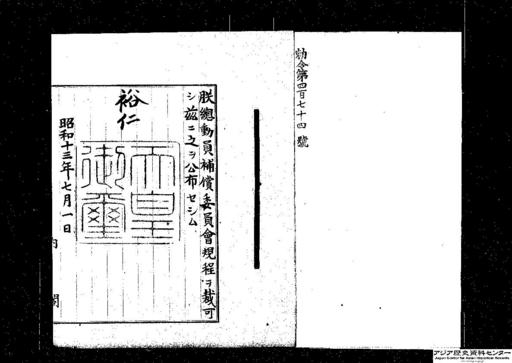 勅令第四百七十四號
朕總動員補償委員會規程ヲ裁可
シ茲ニ之ヲ公布セシム
裕仁
天皇
御璽
昭和十三年七月一日
内閣
アジア歴史資料センター
Japan Center for Asian Historical Records